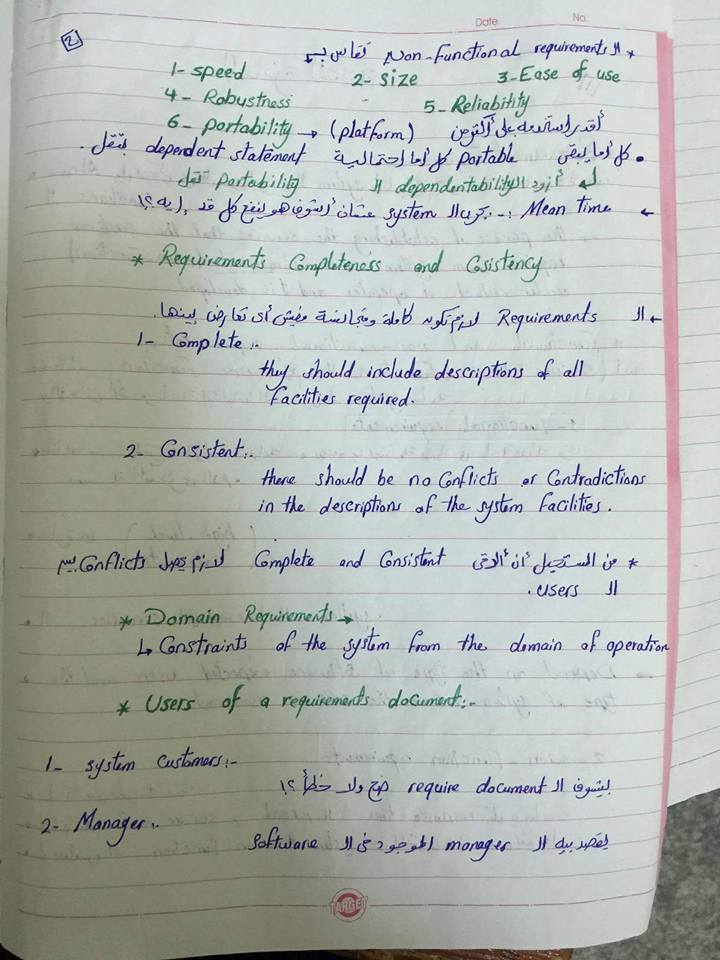 Date.
No.
2
* الـ Non-Functional requirements تقاس بـ
1- speed 2- Size 3- Ease of use
4- Robustness 5- Reliability
6- portability → (platform) أقدر استخدمه على أكتر من
• كل أما يبقى portable كل أما احتمالية dependent statement بتقل .
أزود الـ dependentability الـ portability تقل
← Mean time :- بجرب الـ system عشان أشوف هو ينفع كل قد إيه ؟!
* Requirements Completeness and Cosistency
← الـ Requirements لازم تكون كاملة ومتجانسة مفيش أى تعارض بينها.
1- Complete :-
they should include descriptions of all
Facilities required.
2- Consistent :-
there should be no Conflicts or Contradictions
in the descriptions of the system Facilities .
* من المستحيل أن ألاقى Complete and Consistent لازم يحصل Conflicts بين
الـ users .
* Domain Requirements →
↳ Constraints of the system from the domain of operation
* Users of a requirements document :-
1- system Customers :-
بيشوف الـ require document صح ولا خطأ ؟!
2- Manager :-
يقصد بيه الـ manager الموجود فى الـ Software
TARGET